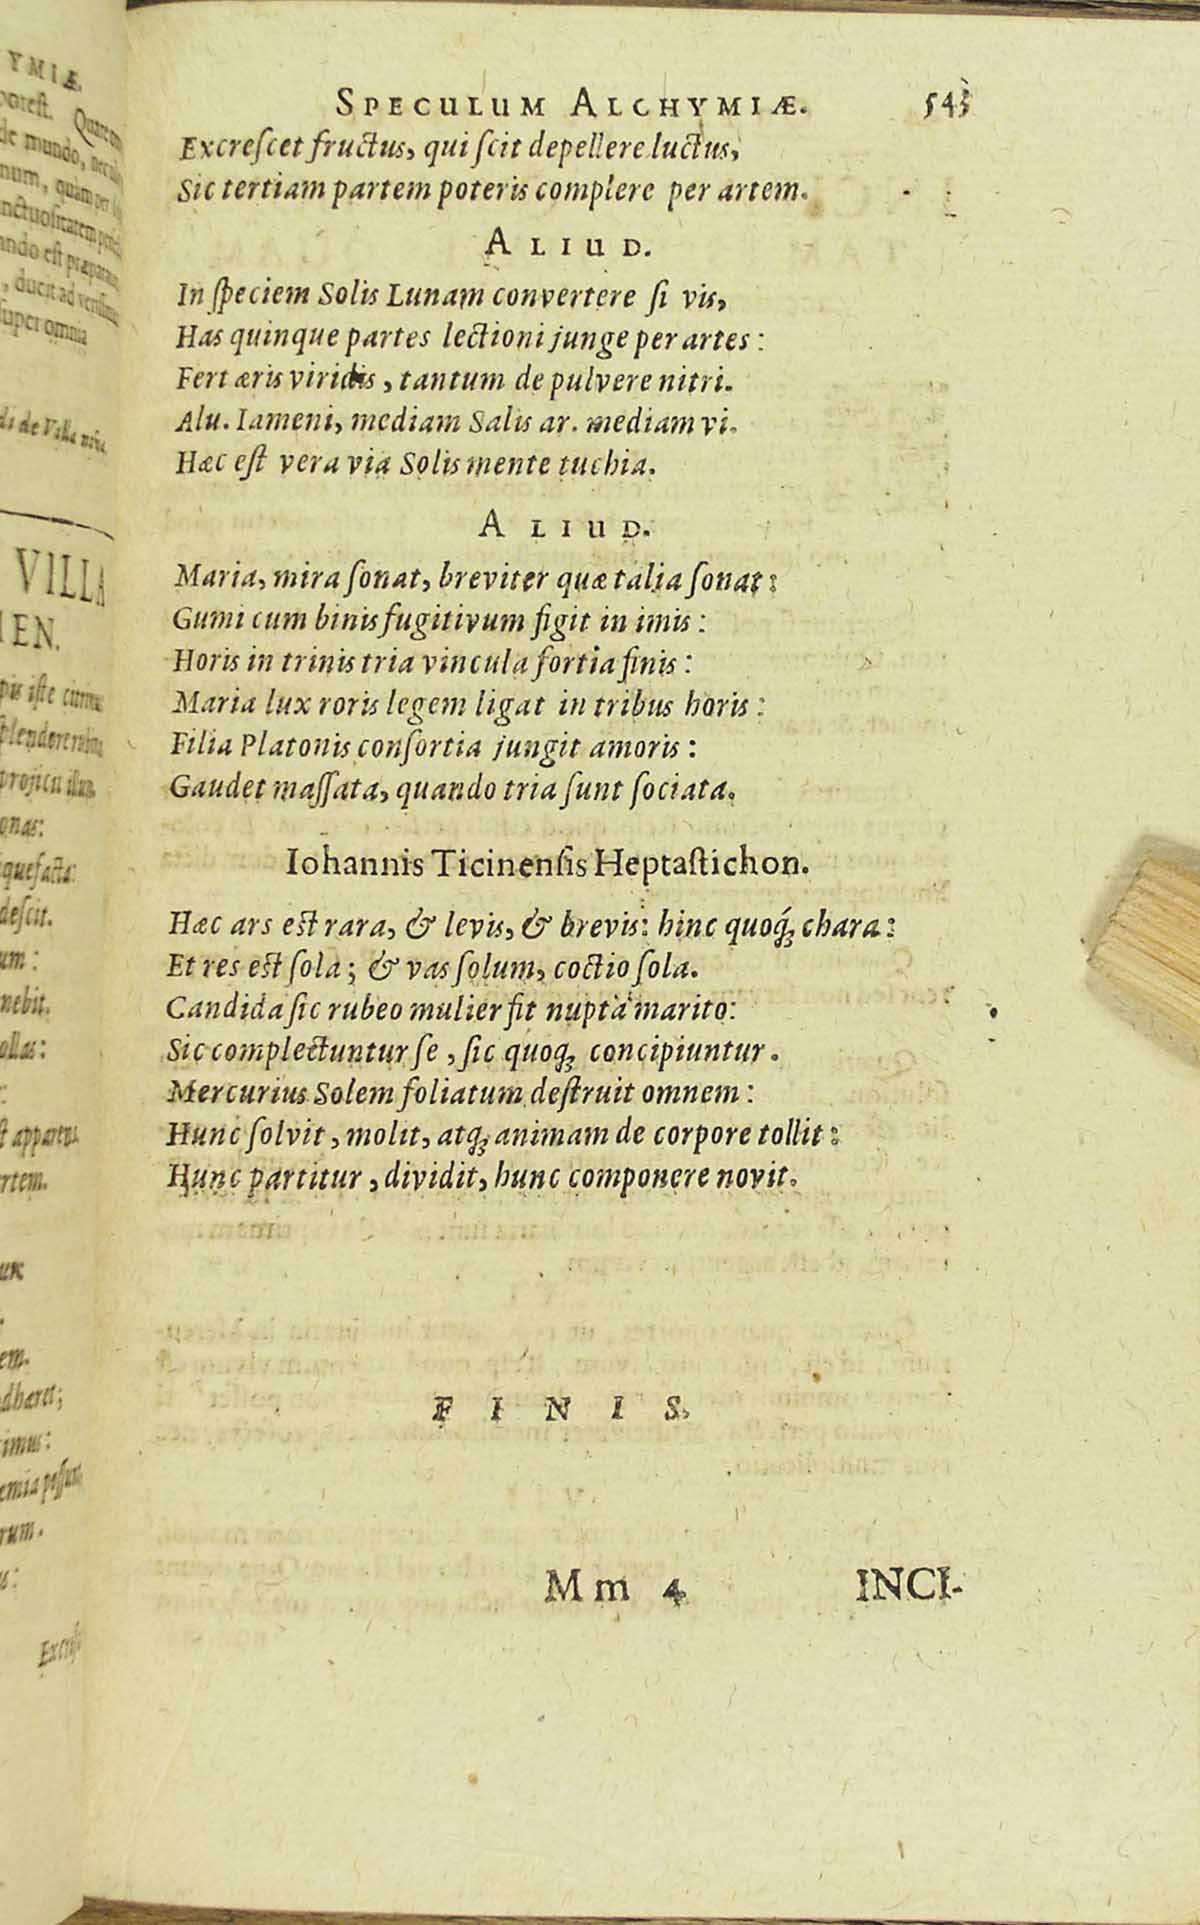 YMIÆ.
potest. Quare
de mundo, nec
num, quam per
ando est præparan
, ducit ad
super omnia
de Villa nova
VILLA
IEN.
pis iste
splendore
projicu
onas:
quefacta:
descit.
um:
nebit.
ollas:
st apparens
rtem.
em.
dhæret;
imus:
emia possunt
rum.
SPECULUM ALCHYMIÆ. 543
Excreſcet fructus, qui ſcit depellere luctus,
Sic tertiam partem poteris complere per artem.
ALIUD.
In ſpeciem Solis Lunam convertere ſi vis,
Has quinque partes lectioni junge per artes:
Fert æris viridis, tantum de pulvere nitri.
Alu. Iameni, mediam Salis ar. mediam vi.
Hæc eſt vera via Solis mente tuchia.
ALIUD.
Maria, mira ſonat, breviter quæ talia ſonat:
Gumi cum binis fugitivum figit in imis:
Horis in trinis tria vincula fortia finis:
Maria lux roris legem ligat in tribus horis:
Filia Platonis conſortia jungit amoris:
Gaudet maſſata, quando tria ſunt ſociata.
Iohannis Ticinenſis Heptaſtichon.
Hæc ars eſt rara, & levis, & brevis: hinc quoq́ꝫ chara:
Et res eſt ſola; & vas ſolum, coctio ſola.
Candida ſic rubeo mulier fit nupta marito:
Sic complectuntur ſe, ſic quoqꝫ concipiuntur.
Mercurius Solem foliatum deſtruit omnem:
Hunc ſolvit, molit, atqꝫ animam de corpore tollit:
Hunc partitur, dividit, hunc componere novit.
FINIS.
Mm 4 INCI-